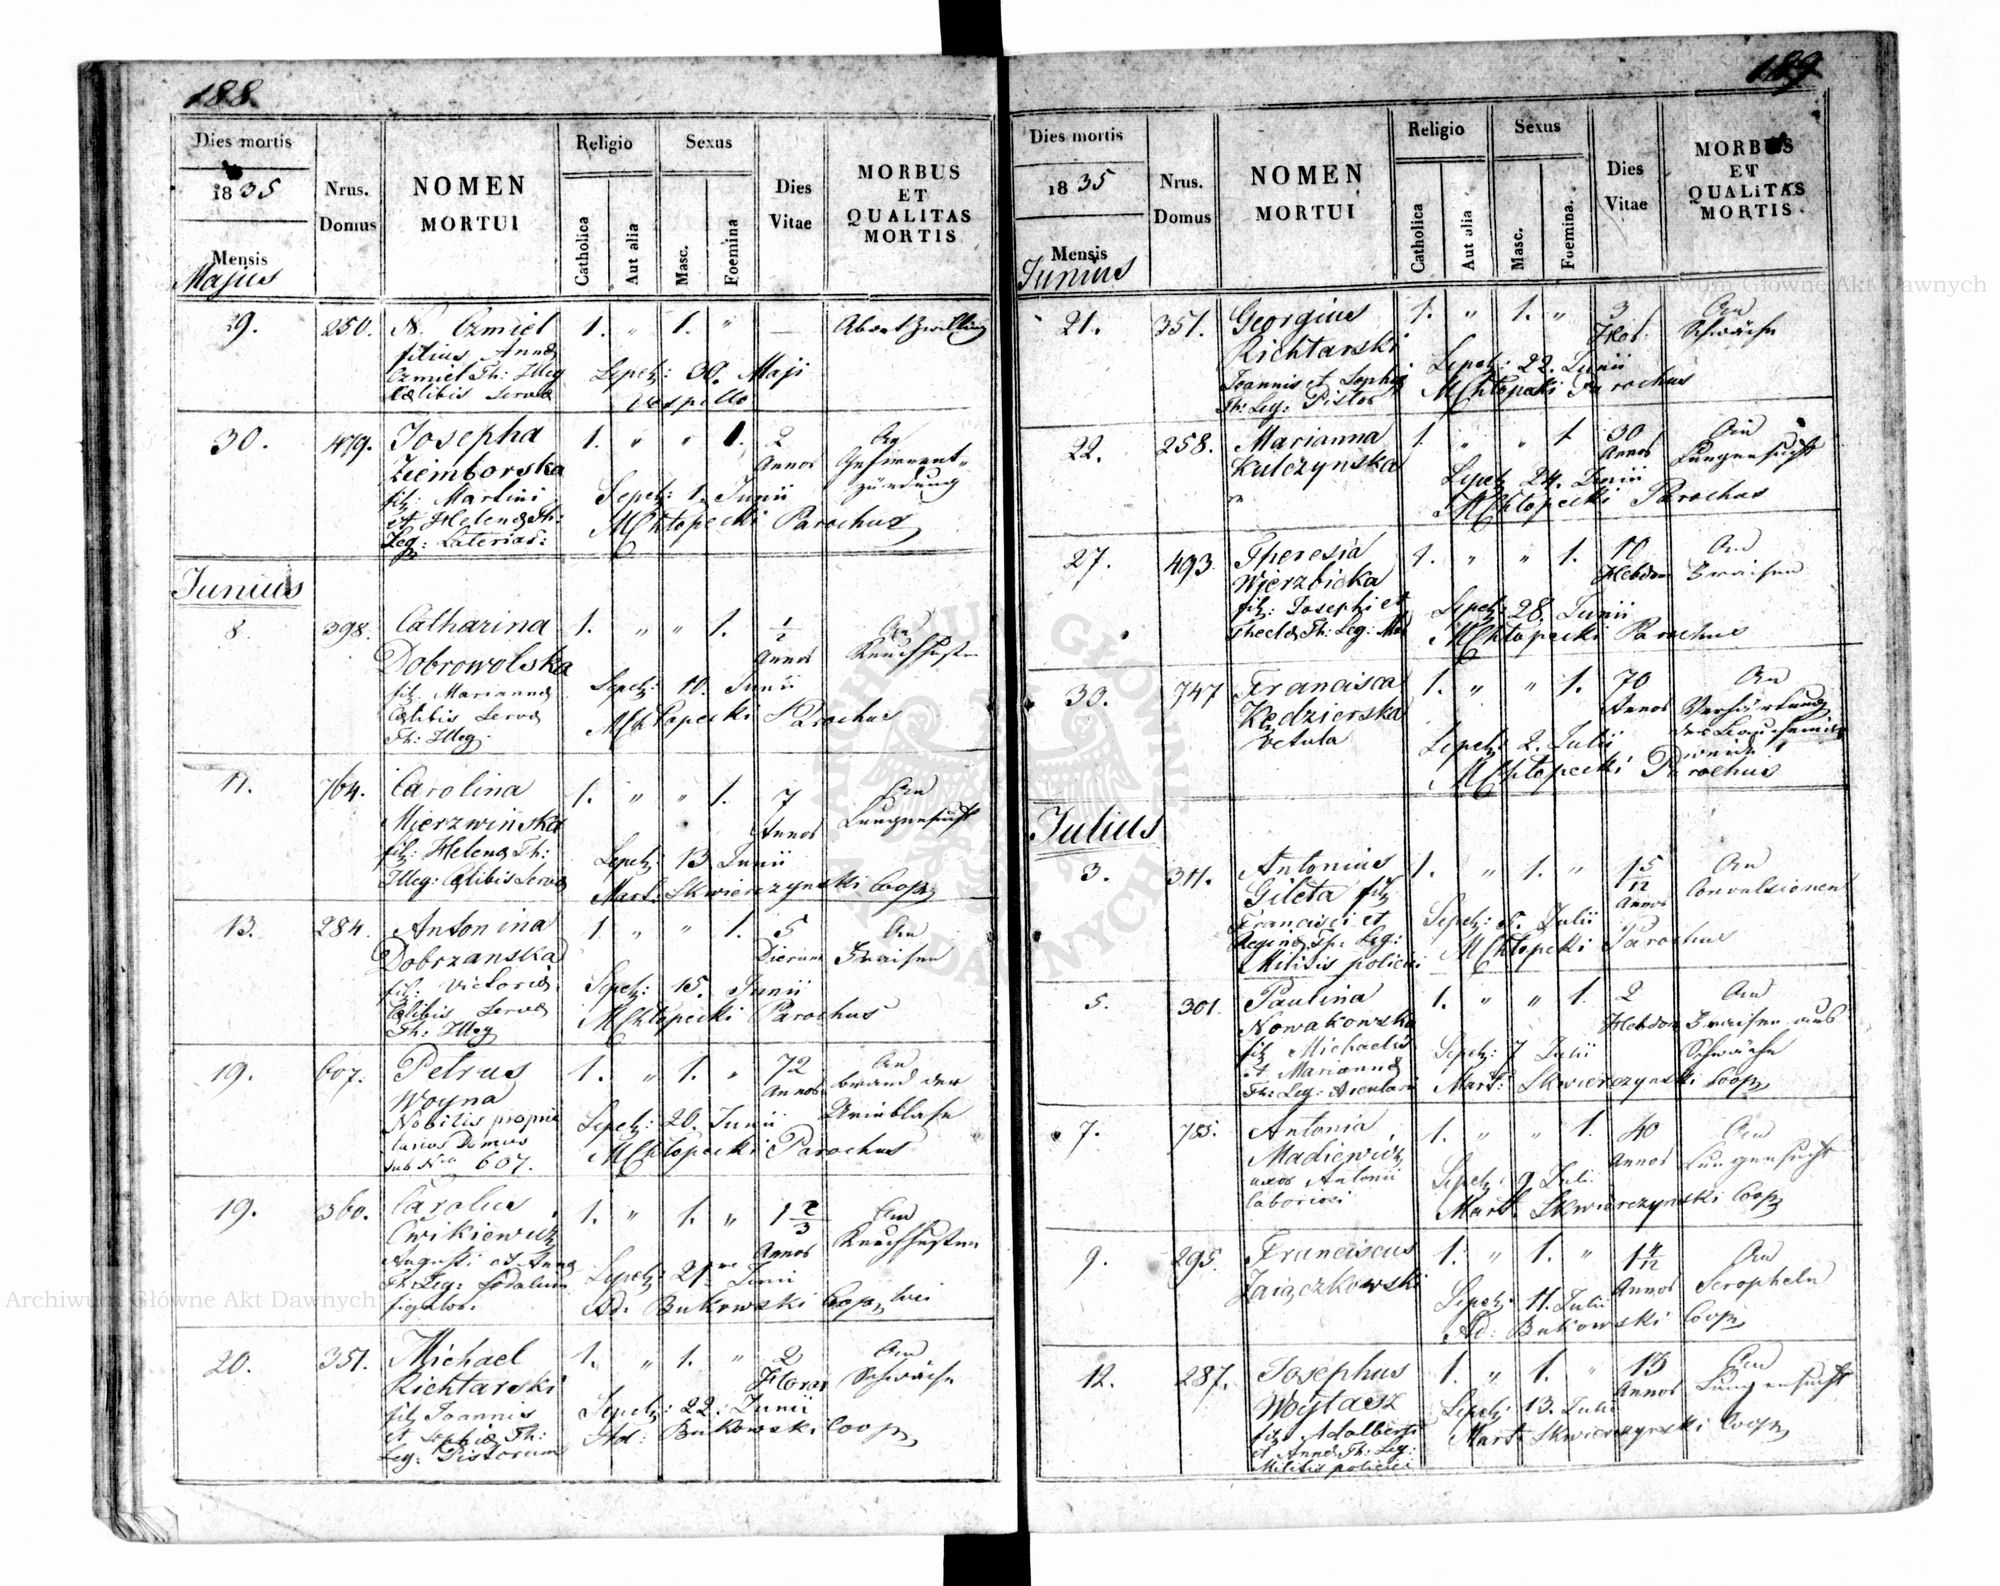 188
Dies mortis
1835
Mensis
Majus
Nrus.
Domus
NOMEN
MORTUI
Religio
Catholica
Aut alia
Sexus
Masc.
Foemina
Dies
Vitae
MORBUS
ET
QUALITAS
MORTIS
29. 250. N. Czmiel 1. " 1. " —
filius Annæ
Czmiel Th: Illeg Sepel: 30. Maji
Cælibis Servæ Vespillo
30. 479. Josepha 1. " " 1. 2 An
Ziemborska Annos Gehirnent-
fil: Martini Sepel: 1. Junii zündung
et Helenæ Th: MChłopecki Parochus
Leg: Lateriar:
Junius
8. 398. Catharina 1. " " 1. 1/2 An
Dobrowolska Annos Keuchhusten
fil. Mariannæ Sepel: 10. Junii
Cælibis Servæ MChłopecki Parochus
Th: Illeg.
11. 764. Carolina 1. " " 1. 7 An
Mierzwińska Annos Lungensucht
fil: Helenæ Th: Sepel: 13 Junii
Illeg: Cælibis Servæ Mart: Skwierczynski Coop
13. 284. Antonina 1. " " 1. 5 An
Dobrzanska Dierum Fraisen
fil: Victoriæ Sepel: 15. Junii
Cælibis Servæ MChłopecki Parochus
Th: Illeg
19. 607. Petrus 1. " 1. " 72 An
Woyna Annos brand der
Nobilis proprie Sepel: 20. Junii Urinblase
tarius Domus MChłopecki Parochus
sub Nro 607.
19. 360. Carolus 1. " 1. " 1 2/3 An
Cwikiewicz Annos Keuchhusten
Augusti et Annæ Sepel: 21 Junii
Th: Leg: Sodalium Ad. Bukowski Coop
figulor.
20. 351. Michael 1. " 1. " 2 An
Richtarski Horas Schwäche
fil: Joannis Sepel: 22. Junii
et Sophiæ Th: Ad: Bukowski Coop
Leg: Pistorum
189
Dies mortis
1835
Mensis
Junius
Nrus.
Domus
NOMEN
MORTUI
Religio
Catholica
Aut alia
Sexus
Masc.
Foemina.
Dies
Vitae
MORBUS
ET
QUALITAS
MORTIS.
21. 351. Georgius 1. " 1. " 3 An
Richtarski Hor. Schwäche
Joannis et Sophiæ Sepel: 22. Junii
Th: Leg: Pistor MChłopecki Parochus
22. 258. Marianna 1. " " 1. 30 An
Kulczynska Annos Lungensucht
Sepel: 24. Junii
MChłopecki Parochus
27. 493. Theresia 1. " " 1. 10 An
Wierzbicka Hebdom Fraisen
fil: Josephi et Sepel: 28. Junii
Theclæ Th: Leg: MChłopecki Parochus
30. 747 Francisca 1. " " 1. 70 An
Kędzierska Annos Verhärtung
Vetula Sepel: 2. Julii
MChłopecki Parochus
Julius
3. 311. Antonius 1. " 1. " 1 5/12 An
Gileta fil: Annos Convulsionen
Francisci et Sepel: 5. Julii
Reginæ Th: Leg: MChłopecki Parochus
Militis policiei
5. 301. Paulina 1. " " 1. 2 An
Nowakowska Hebdom Fraisen aus
fil Michaelis Sepel: 7 Julii Schwäche
et Mariannæ Mart: Skwierczynski Coop
Th: Leg: Arcularii
7. 755. Antonia 1. " " 1. 40 An
Madiewicz Annos Lungensucht
uxor Antonii Sepel: 9 Juli
laboriosi Mart. Skwierczynski Coop
9. 295. Franciscus 1. " 1. " 1 4/12 An
Zajączkowski Annos Scropheln
Sepel: 11. Julii
Ad: Bukowski Coop
12. 287. Josephus 1. " 1. " 13 An
Woytasz Annos Lungensucht
fil: Adalberti Sepel: 13. Julii
et Annæ Th: Leg: Mart: Skwierczynski Coop
Militis policiei
Archiwum Główne Akt Dawnych
Archiwum Główne Akt Dawnych
ARCHIWUM GŁÓWNE
AKT DAWNYCH